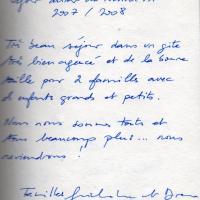 2007 / 2008
Très beau séjour dans un gîte
très bien agencé et de la bonne
taille pour 2 familles avec
enfants grands et petits.
Nous nous sommes tous et
beaucoup plus... nous
reviendrons !
Familles et